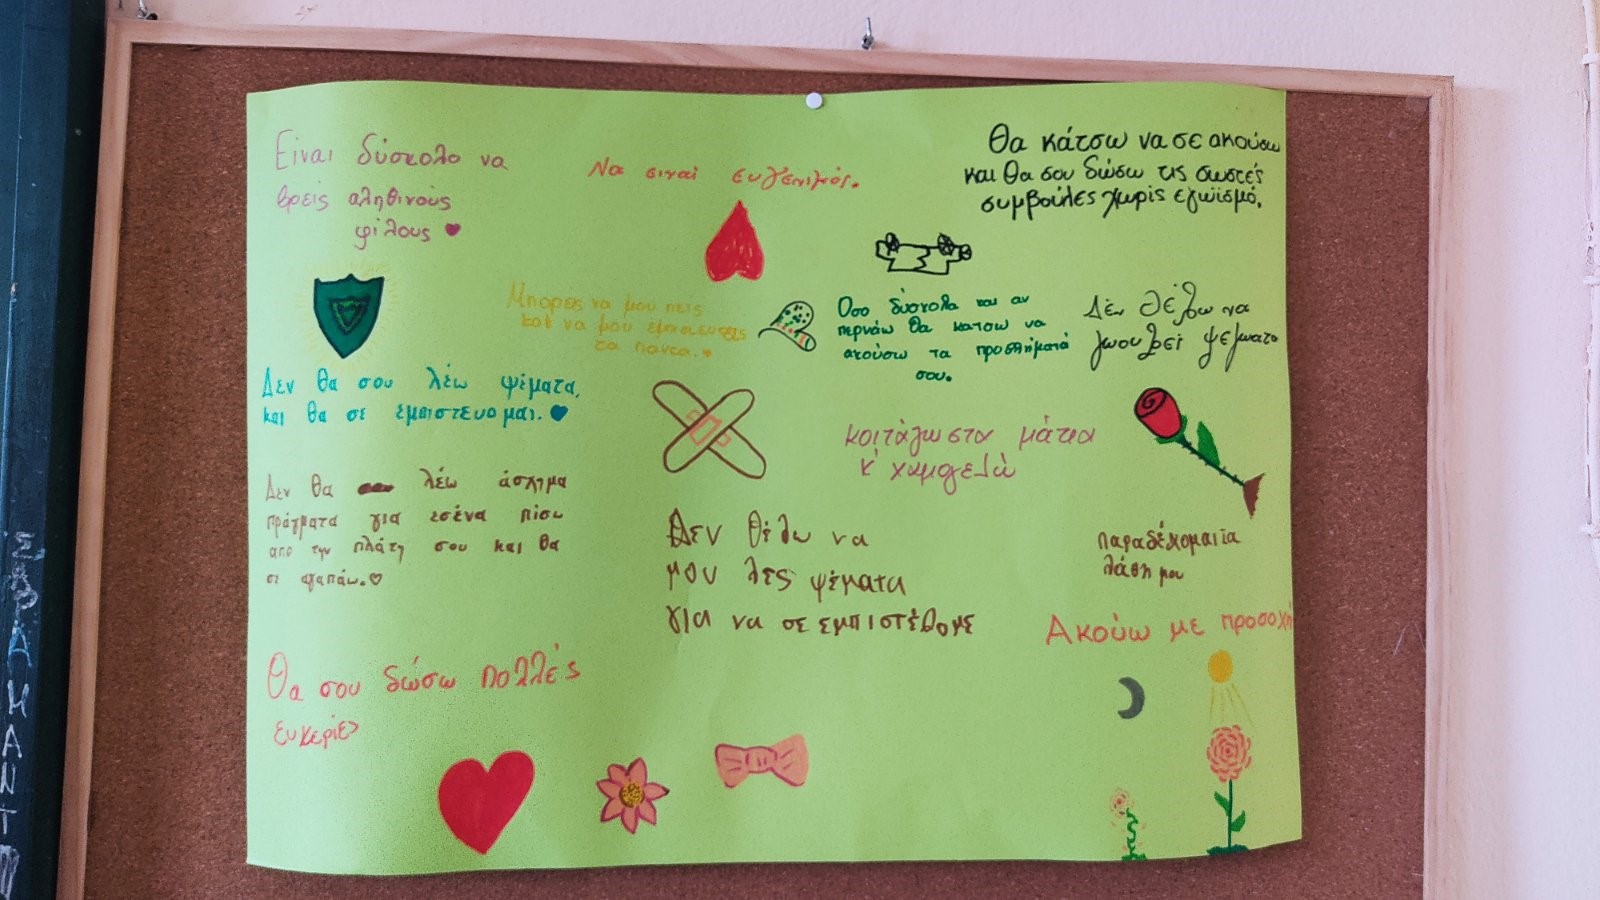 Είναι δύσκολο να
βρείς αληθινούς
φίλους
Να ειναί ευγενικός.
Θα κάτσω να σε ακούσω
και θα σου δώσω τις σωστές
συμβουλές χωρίς εγωϊσμό.
Μπορεις να μου πεις
και να μου εμπιστευτεις
τα παντα.
Οσο δύσκολα και αν
περνάω θα κατσω να
ακούσω τα προβλήματά
σου.
Δέν θέλω να
ψέματα
Δεν θα σου λέω ψέματα,
και θα σε εμπιστευομαι.
κοιτάζω στα μάτια
κ' χαμογελώ
Δεν θα λέω άσχημα
πράγματα για εσένα πίσω
απο την πλάτη σου και θα
σε αγαπάω.
Δεν θέλω να
μου λες ψέματα
για να σε εμπιστέθομε
παραδέχομαι τα
λάθη μου
Ακούω με προσοχή
Θα σου δώσω πολλές
ευκερίες
ΣΒΡΑΜΑΝΤ